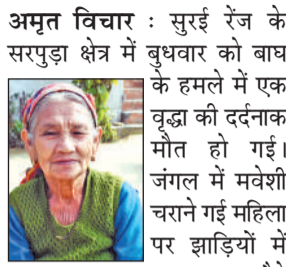 अमृत विचार : सुरई रेंज के
सरपुड़ा क्षेत्र में बुधवार को बाघ
के हमले में एक
वृद्धा की दर्दनाक
मौत हो गई।
जंगल में मवेशी
चराने गई महिला
पर झाड़ियों में